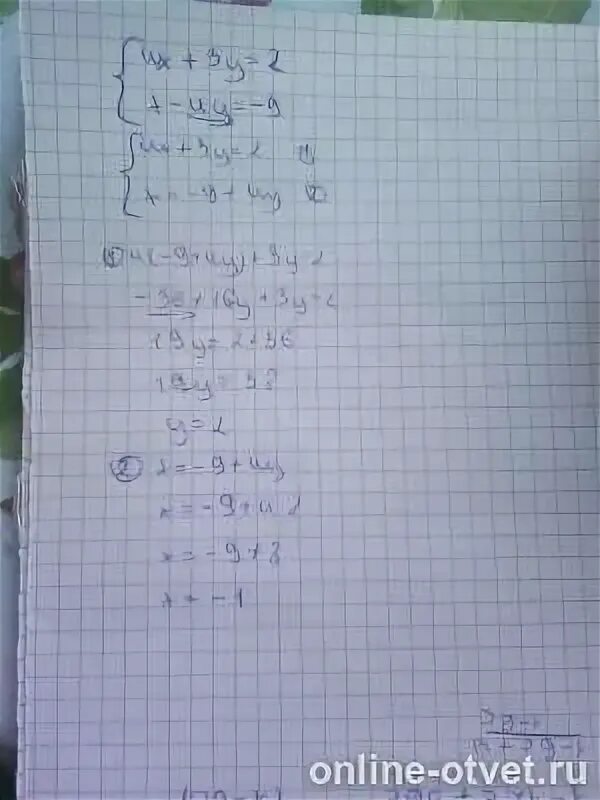 4x + 3y = 2
x - 4y = -9
4x + 3y = 2 ①
x = -9 + 4y ②
① 4(-9+4y)+3y=2
-36+16y+3y=2
19y=2+36
19y=38
y=2
② x=-9+4y
x=-9+4·2
x=-9+8
x=-1
online-otvet.ru